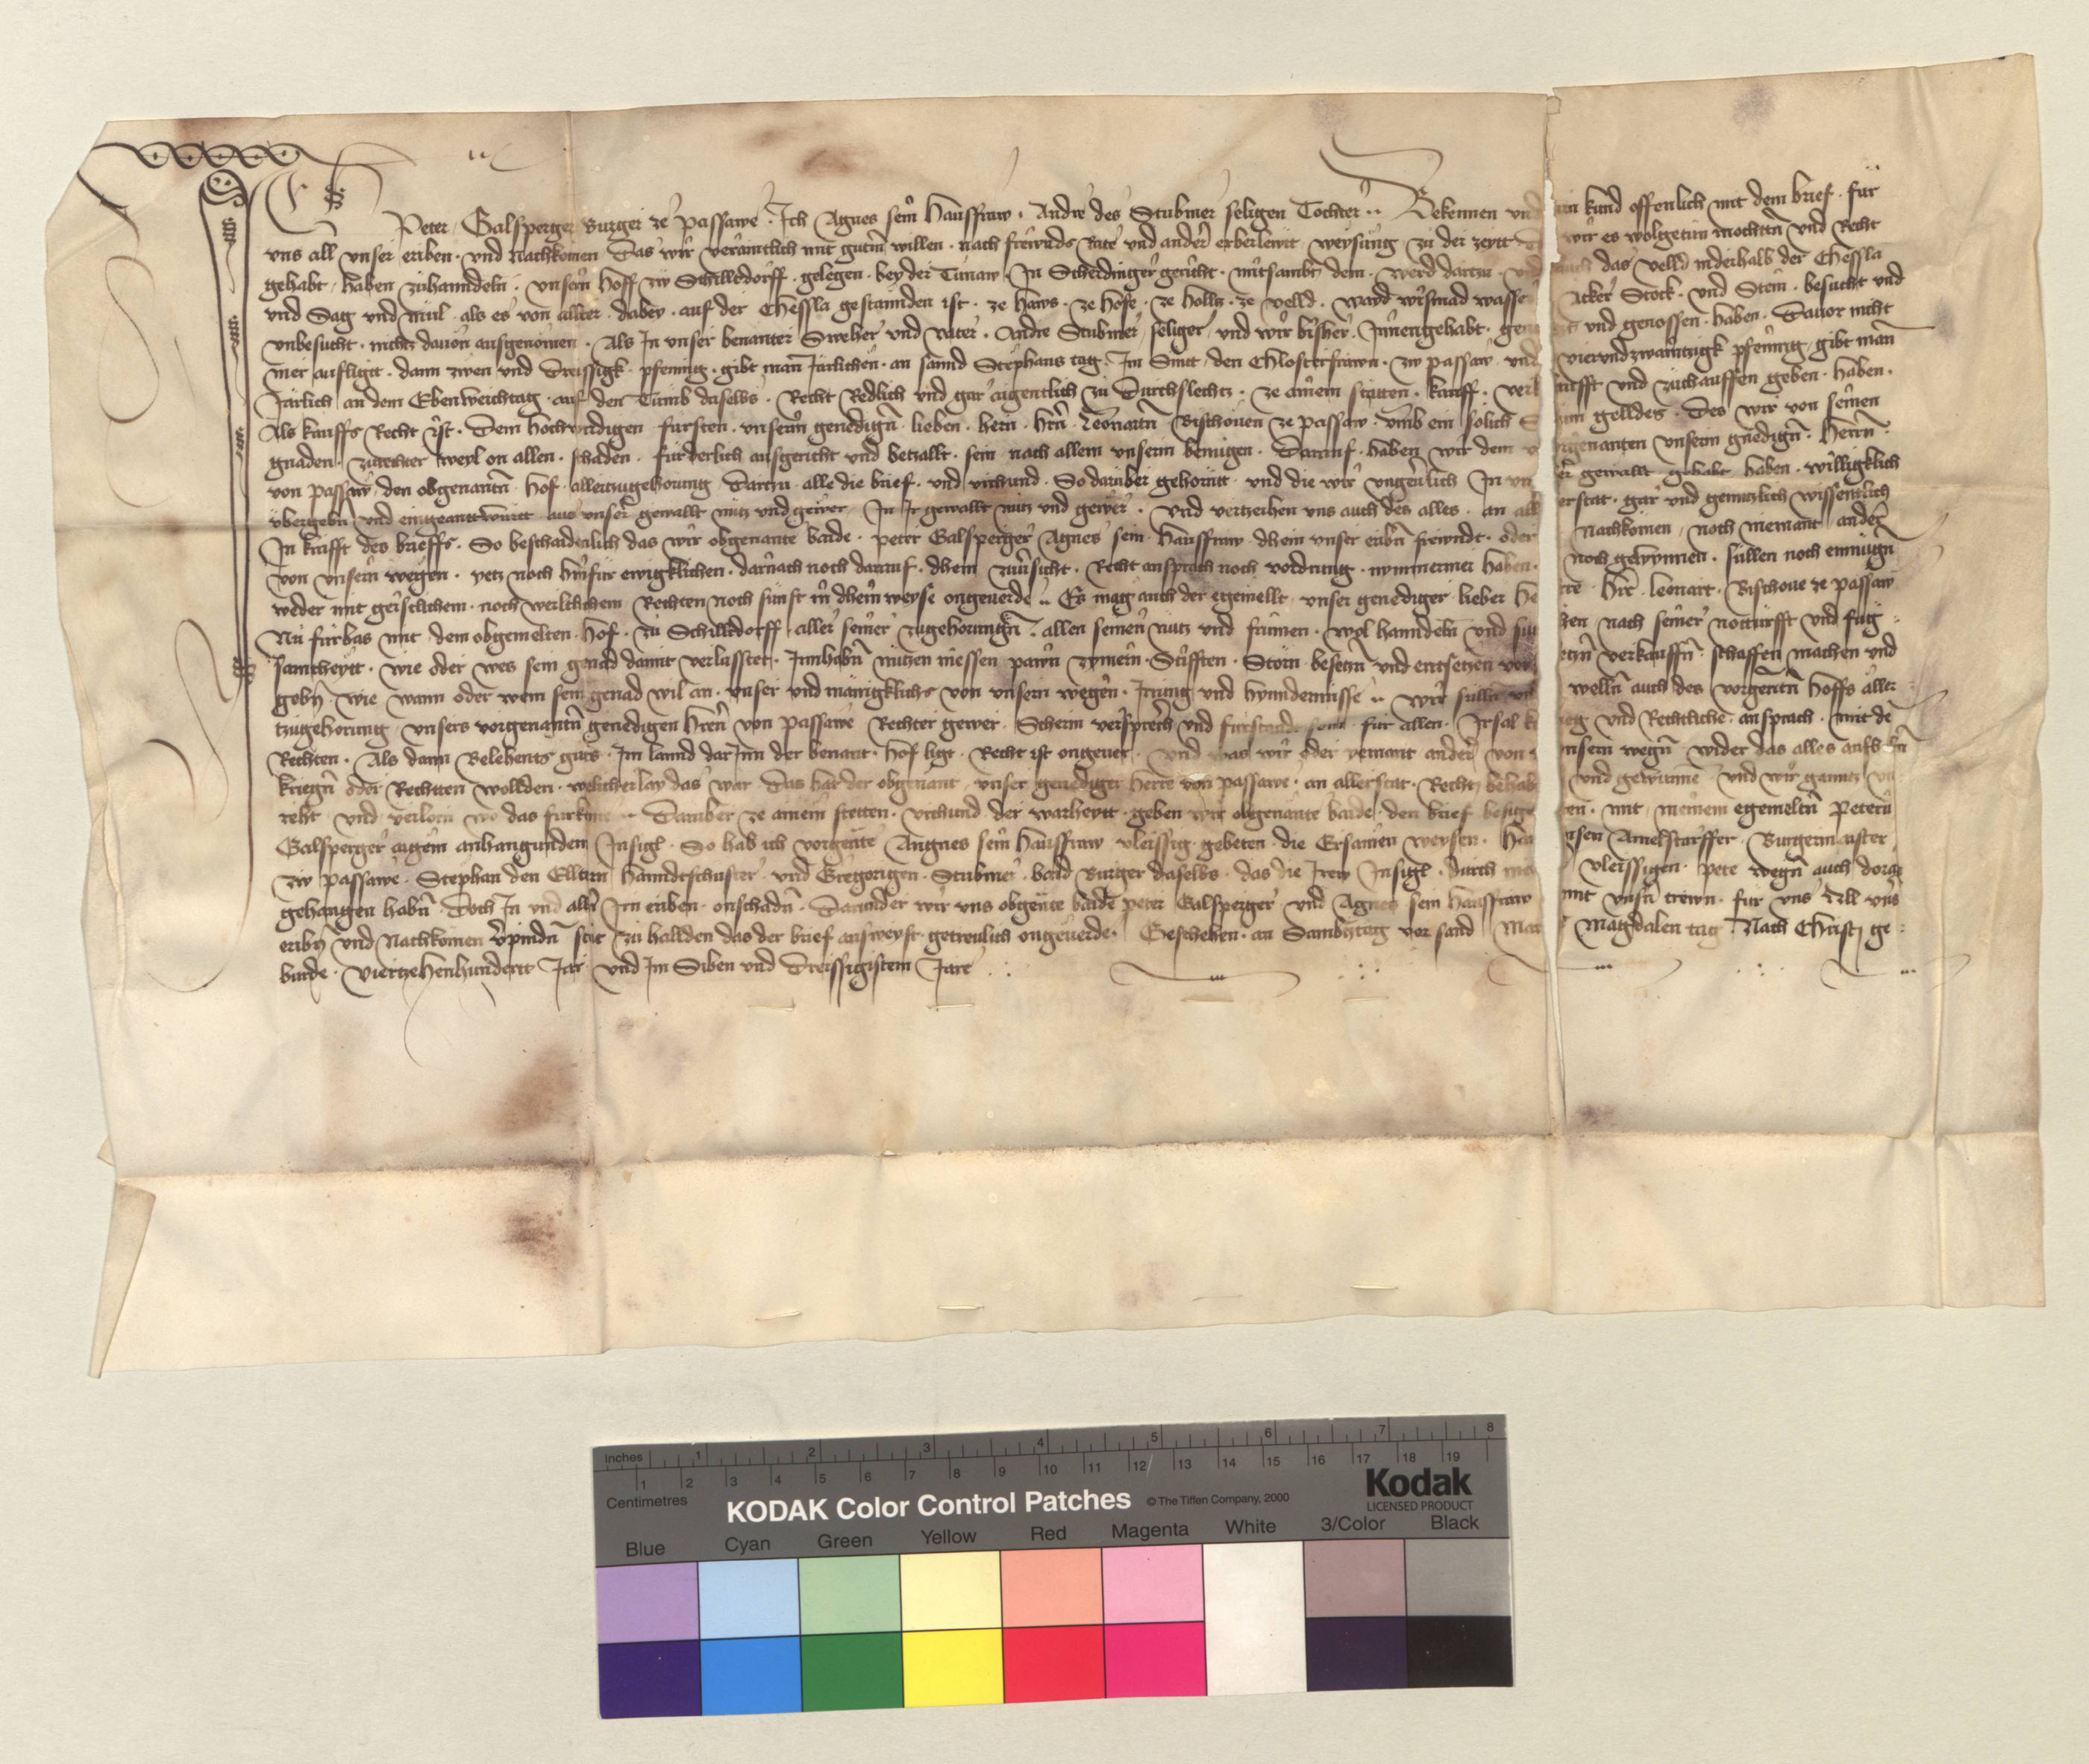 Ich Peter Galsperger Burger ze Passawe . Ich Agnes sein Hausfraw . Andre des Stubmer seligen Tochter .. Bekennen und kund offenlich mit dem brief . fur
uns all unser eriben . und Nachkomen Das wir veraintlich mit gutm willen . nach frewnds Rate und ander erberlewtt weysung zu der zeytt wir es wolgetun mochten und Recht
gehabt haben zuhanndeln . unsern Hoff zw Schilltdorff . gelegen . bey der Tunaw . In Scherdinger gericht . mitsambt dem . werd dartzu . das velld inderhalb der Chessla
und Sag und Mül . als es von allter . dabey . auf der Chessla gestannden ist . ze haws . ze hofe . ze holltz . ze velld . wayd wismad wasser Acker Stock . und Stein . besucht und
unbesucht . nichtz davon ausgenomen . Als In unser benanter Sweher und Vater . Andre Stubmer seliger und wir bisher . Innengehabt . und genossen . haben . Davor nicht
mer aufligtt . dann zwen und Dreissigk . pfennig . gibt man Järlichen . an sannd Stephans tag . Im Snitt . den Closterfrawn . zw passaw und vierundzwaintzigk pfennig . gibt man
Järlich an dem Ebenweichtag . auf den Tumb daselbs . Recht Redlich und gar aigentlich zu Durchslechtz . ze ainem stätten . kauff . und zuchauffen geben . haben .
Als kauffs Recht ist . Dem Hochwirdigen fursten . unserm genedign . lieben . hern . hrn . Leonartn Bischouen ze passaw . umb ein solich gelldes . Des wir von seinen
gnaden . zurechter weyl on allen . schaden . furderlich ausgericht und betzallt . sein nach allem unserm benugen . Darauf . haben wir dem unserm gnedign . Herrn .
von passaw den obgenantn . Hof . allertzugehorung Dartzu . alle die brief . und urchund . So daruber gehoritt . und die wir ungerlich In gewallt gehabt haben . willigklich
ubergebn und eingeanttwurtt aus unser gewallt nutz und gewer In Ir gewallt nutz und gewer . und vertzeihen uns auch des alles . an gar und genntzlich wissentlich
In krafft des brieffs . So beschaidenlich das wir obgenante baide . peter Galsperger Agnes sein Hausfraw dhein unser eribn frewndt . oder Nachkomen noch niemant ander
von unsern wegen . yetz noch hinfur ewigklichen . darnach noch darauf . dhein zuversicht . Recht ansprach noch vordrung . nymmermer haben . noch gewynnen . sullen noch enmugn
weder mit geistlichem . noch werltlichem Rechten noch sunst in dhein weyse ongeuerde .. Es mag auch der egemellt . unser genediger . lieber Hrr . leonart . Bischoue ze passaw
Nu furbas mit dem obgemelten . Hof . zu Schilltdorff . aller seiner zugehorungn . allen seinen nutz und frumen . wol hanndeln und nach seiner notturfft und fug .
samcheytt . wie oder wes sein genad damit verlusstet . Innhabn nutzen niessen pawn zymern . Stifften . Storn . besetzn und entsetzen verkauffn . schaffen machen und
gebn . wie wann oder wem sein genad wil an . unser und manigklichs von unsern wegen . Irrung und hynndernisse .. wir sullen welln auch des vorgentn hoffs aller
tzugehorung unsers vorgenantn genedigen hren von passawe Rechter gewer . Scherm versprech und furstande sein . fur allen . Irsal und Rechtliche . ansprach . mit de
Rechten . Als dann Belehents guts . Im lannd dar Inn der benant . hof ligt . Recht ist ongeuer . und was wir oder yemant ander von unsern wegn . wider das alles aufbrn
kriegn oder Rechtten wollden . welicherlay das wär Das hat der obgenant unser genediger herre von passawe . an allerstat . Recht behabt und gewunne und wir ganntz
recht und verlorn wo das furkumt .. Daruber ze ainem stetten . urchund der warheytt . geben wir obgenante baide . den brief . mit meinem egemeltn Petern
Galsperger aigem anhangunden Insigl . So hab ich vorgente Angnes sein Hausfraw vleissig . gebeten . die Ersamen weysen . Burgermaister
zw passawe . Stephan den Elltern Hanndtschuster . und Gregorigen . Stubmer . baid Burger daselbs . das die Irew Insigl . durch vleissigen . pete wegn auch
gehangen habn . Doch In und alln Irn eriben . onschadn . Darunder wir uns obgente baide peter Galsperger und Agnes sein Hausfraw mit unsern trewn . fur uns All uns
eribn und Nachkomen verpindn stät zu hallden das der brief ausweyst . getreulich ongeuerde . Geschehen . an Sambtztag vor sand Magdalen tag . Nach Christj ge
burde . viertzehenhundertt Jar und Im Siben und Dreissigistem Jare
Inches 1 2 3 4 5 6 7 8
Centimetres 1 2 3 4 5 6 7 8 9 10 11 12 13 14 15 16 17 18 19
KODAK Color Control Patches © The Tiffen Company, 2000
Kodak
LICENSED PRODUCT
Blue Cyan Green Yellow Red Magenta White 3/Color Black